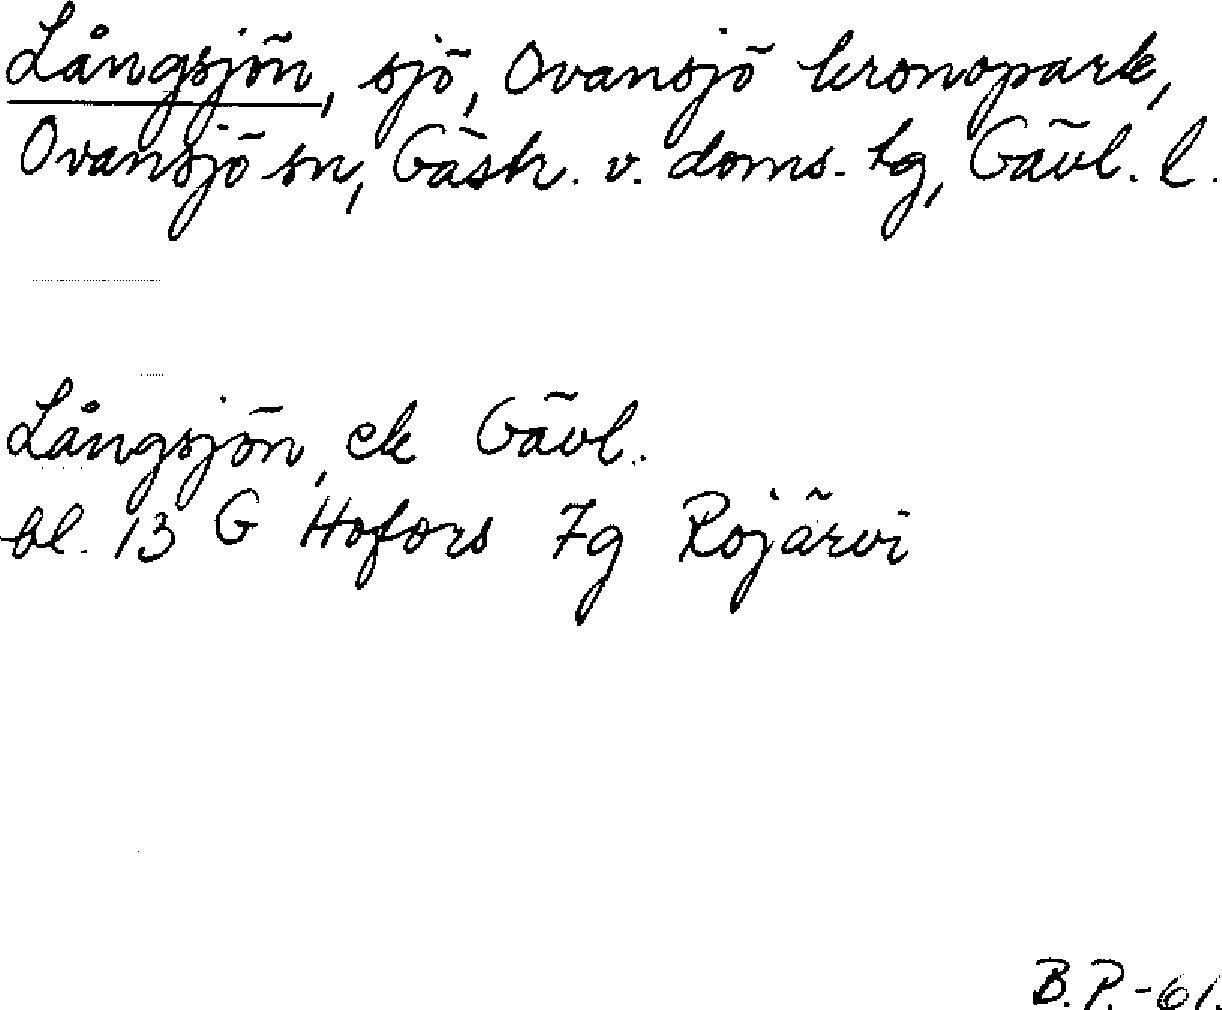 Långsjön, sjö, Ovansjö kronopark,
Ovansjö sn, Gästr. v. doms. tg, Gävl. l.
Långsjön, ek Gävl.
bl. 13 G Hofors 7g Rojärvi
B.P.-61.